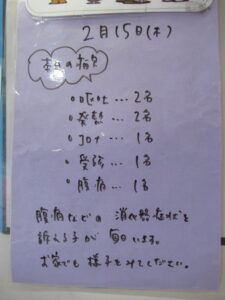 2月15日(木)
本日の病欠
◦嘔吐…2名
◦発熱…2名
◦コロナ…1名
◦受診…1名
◦腹痛…1名
腹痛などの消化器症状を
訴える子が毎日います。
お家でも様子をみてください。